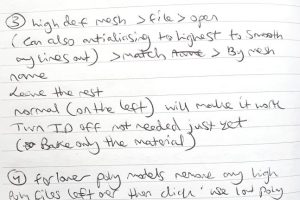 ③ high def mesh > file > open
(can also antialiasing to highest to smooth
any lines out) > match > By mesh
name
Leave the rest
normal (on the left) will make it work
Turn ID off not needed just yet
(Bake only the material)
④ for lower poly models remove any high
poly files left over then click 'use low poly